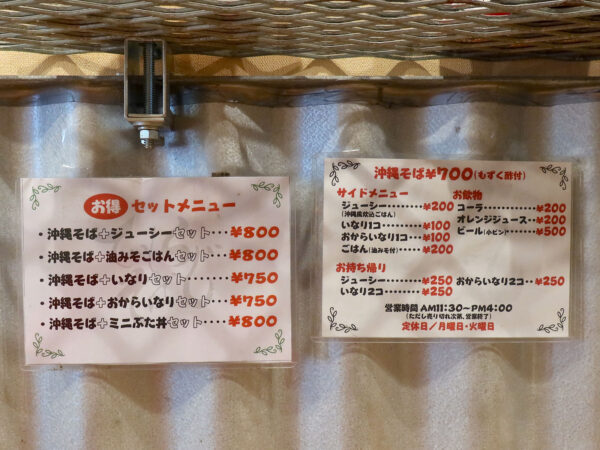 お得 セットメニュー
・沖縄そば+ジューシーセット・・・¥800
・沖縄そば+油みそごはんセット・・¥800
・沖縄そば+いなりセット・・・・¥750
・沖縄そば+おからいなりセット・・¥750
・沖縄そば+ミニぶた丼セット・・・・¥800
沖縄そば¥700(もずく酢付)
サイドメニュー
ジューシー・・・・・・¥200
(沖縄風炊込ごはん)
いなり1コ・・・・・・・¥100
おからいなり1コ・・・¥100
ごはん(油みそ付)・・・・¥200
お飲物
コーラ・・・・・・・・・・・¥200
オレンジジュース・・・¥200
ビール(小ビン)・・・・・¥500
お持ち帰り
ジューシー・・・・・・・・・¥250
いなり2コ・・・・・・・・・¥250
おからいなり2コ・・¥250
営業時間 AM11:30~PM4:00
(ただし売り切れ次第、営業終了)
定休日/月曜日・火曜日